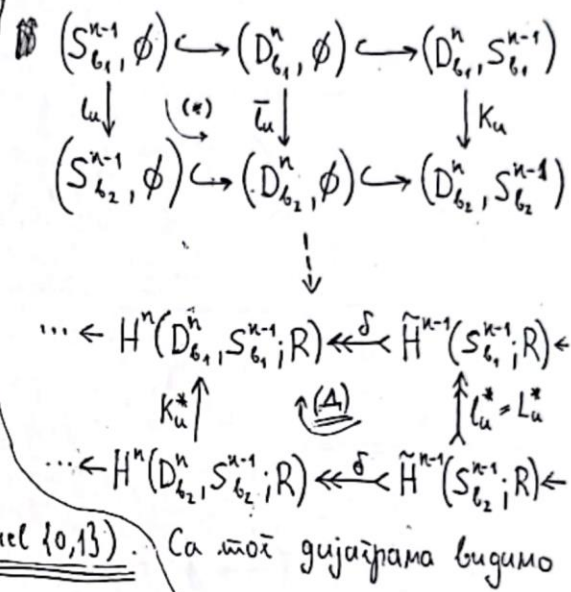 (S^{n-1}_{b_1}, ϕ) ↪ (D^n_{b_1}, ϕ) ↪ (D^n_{b_1}, S^{n-1}_{b_1})
l_u ↓ (*) l̄_u ↓ ↓ K_u
(S^{n-1}_{b_2}, ϕ) ↪ (D^n_{b_2}, ϕ) ↪ (D^n_{b_2}, S^{n-1}_{b_2})
⋯ ← H^n(D^n_{b_1}, S^{n-1}_{b_1}; R) ↞ δ H̃^{n-1}(S^{n-1}_{b_1}; R) ←
K_u^* ↑ (Д) ↑ l_u^* = L_u^*
⋯ ← H^n(D^n_{b_2}, S^{n-1}_{b_2}; R) ↞ δ H̃^{n-1}(S^{n-1}_{b_2}; R) ←
{0,1}). Са тог дијаграма видимо